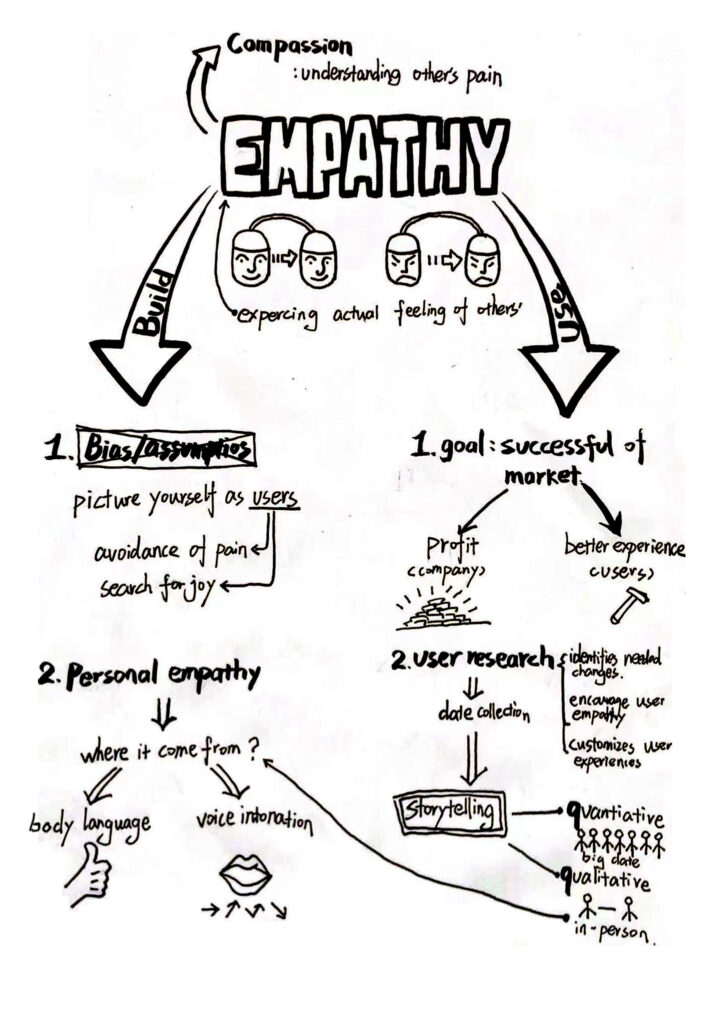 Compassion
: understanding other's pain
EMPATHY
Build
Use
expercing actual feeling of others'
1. Bias/assumptios
picture yourself as users
avoidance of pain
search for joy
2. Personal empathy
where it come from?
body language
voice intonation
1. goal: successful of
market
profit
<company>
better experience
<users>
2. user research
identifies needed
changes.
encourage user
empathy
customizes user
experiences
date collection
Storytelling
quantiative
big date
qualitative
in-person.